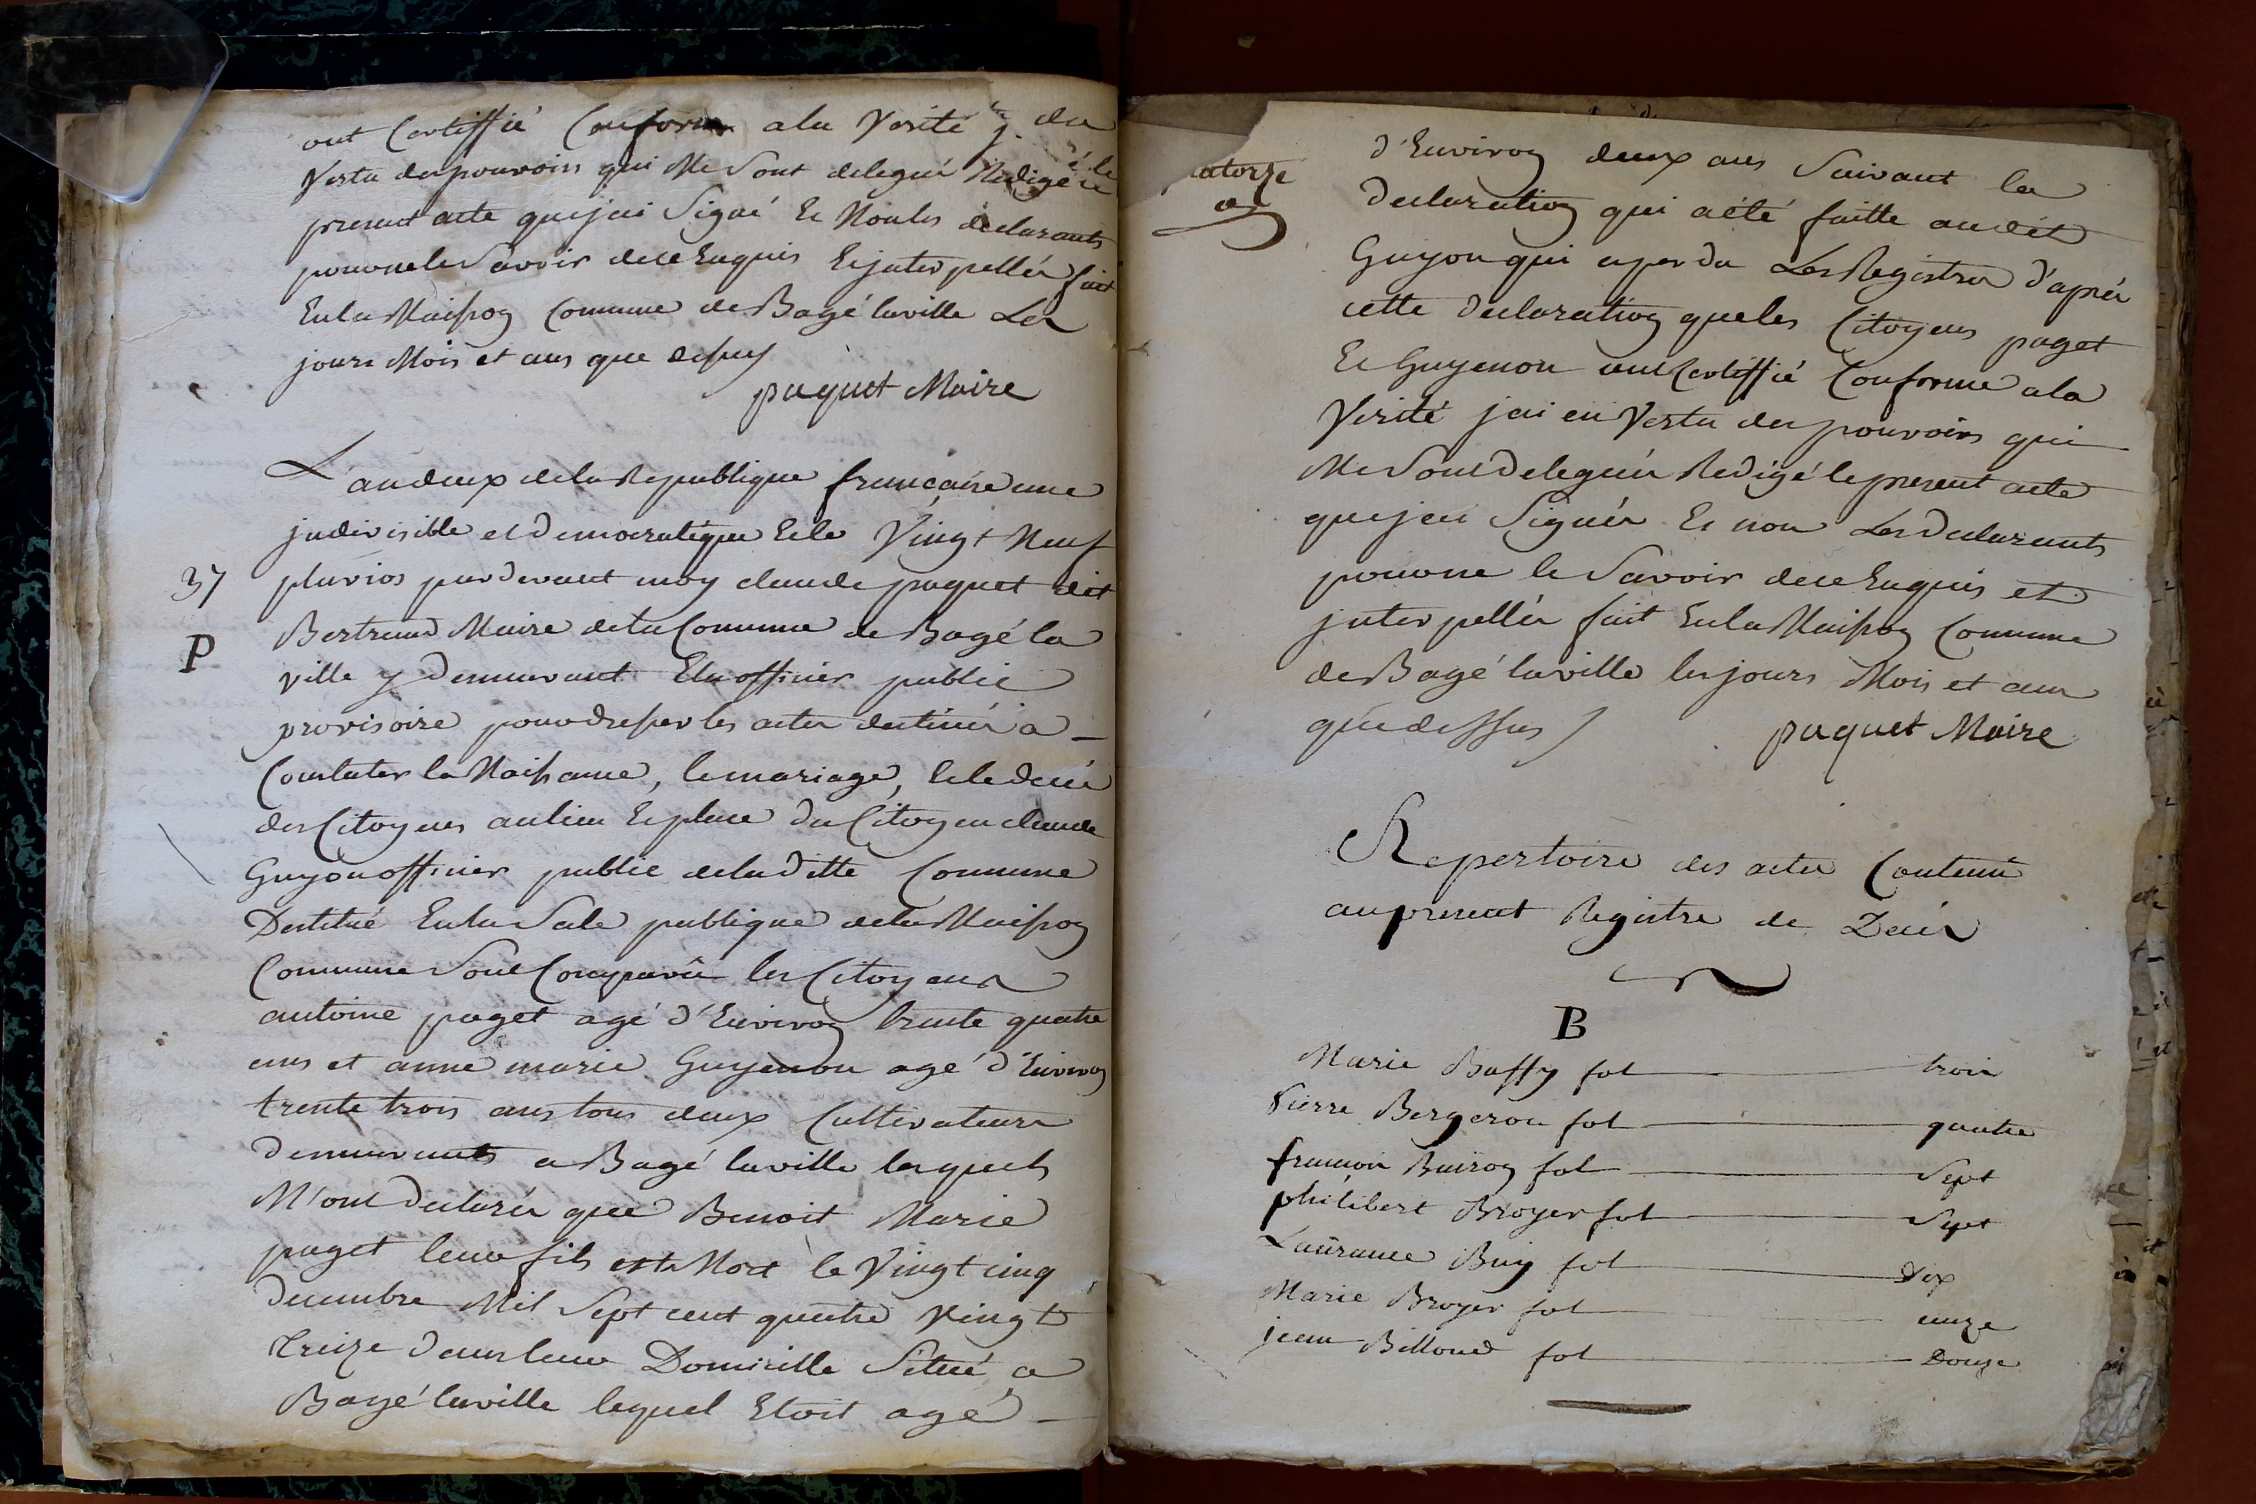 ont Certiffié Conforme a la Verité j. En
Vertu des pouvoirs qui Me Sont delegué Redigé le
present acte que jai Signé Et Non les declarants
pour ne le Savoir de ce Enquis Et jnterpellés fait
En la Maison Comune de Bagé la ville Les
jours Mois et ans que dessus
paquet Maire
L'an deux de la Republique francaise une
jndivisible et Democratique Et le Vingt Neuf
37
pluvios pardevant moy claude paquet dit
P
Bertrand Maire de la Comune de Bagé la
ville y Demeurant Elu officier public
provisoire pour dresser les actes destinés a
Constater la Naissance, le mariage, Et le decés
des Citoyens au lieu Et place du Citoyen claude
Guyon officier public de la ditte Commune
Destitué En la Sale publique de la Maison
Commune Sont Comparû les Citoyens
antoine paget agé d'Environ trente quatre
ans et anne marie Guyenon agé d'Environ
trente trois ans tous deux Cultivateurs
Demeurants a Bagé la ville lesquels
M'ont Declarés que Benoit Marie
paget leur fils est Mort le Vingt cinq
Decembre Mil Sept cent quatre Vingt
Treize dans leur Domicille Situé a
Bagé la ville lequel Etoit agé
quatorze
d'Environ deux ans Suivant la
Declaration qui a été faitte au dit
Guyon qui a perdu Les Registres d'aprés
cette Declaration que les Citoyens paget
Et Guyenon ont Certiffié Conforme a la
Verité jai en Vertu des pouvoirs qui
Me Sont Delegués Redigé le present acte
que jai Signés Et non Les Declarants
pour ne le Savoir de ce Enquis et
jnterpellés fait En la Maison Commune
de Bagé la ville les jours Mois et ans
que dessus
paquet Maire
Repertoire des actes Contenu
au present Registre de Decés
B
Marie Buffy fol trois
Pierre Bergeron fol quatre
francois Buiron fol Sept
philibert Broyer fol Sept
Laurance Buy fol Dix
Marie Broyer fol onze
jean Billoud fol Douze